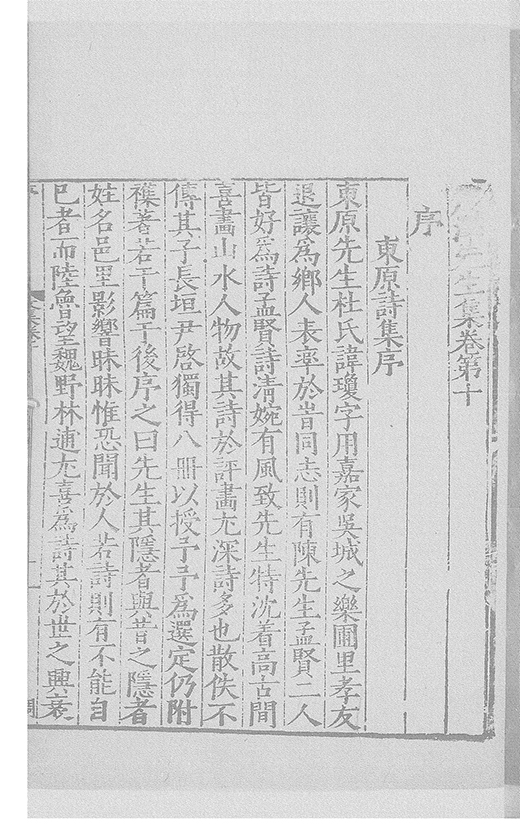 先生集卷第十
序
東原詩集序
東原先生杜氏諱瓊字用嘉家吳城之樂圃里孝友
退讓爲鄉人表率於時同志則有陳先生孟賢二人
皆好爲詩孟賢詩清婉有風致先生特沈着高古間
喜畫山水人物故其詩於評畫尤深詩多也散佚不
傳其子長垣尹啓獨得八冊以授予予爲選定仍附
襍著若干篇于後序之曰先生其隱者與昔之隱者
姓名邑里影響昧昧惟恐聞於人若詩則有不能自
已者而陸魯望魏野林逋尤喜爲詩其於世之興衰